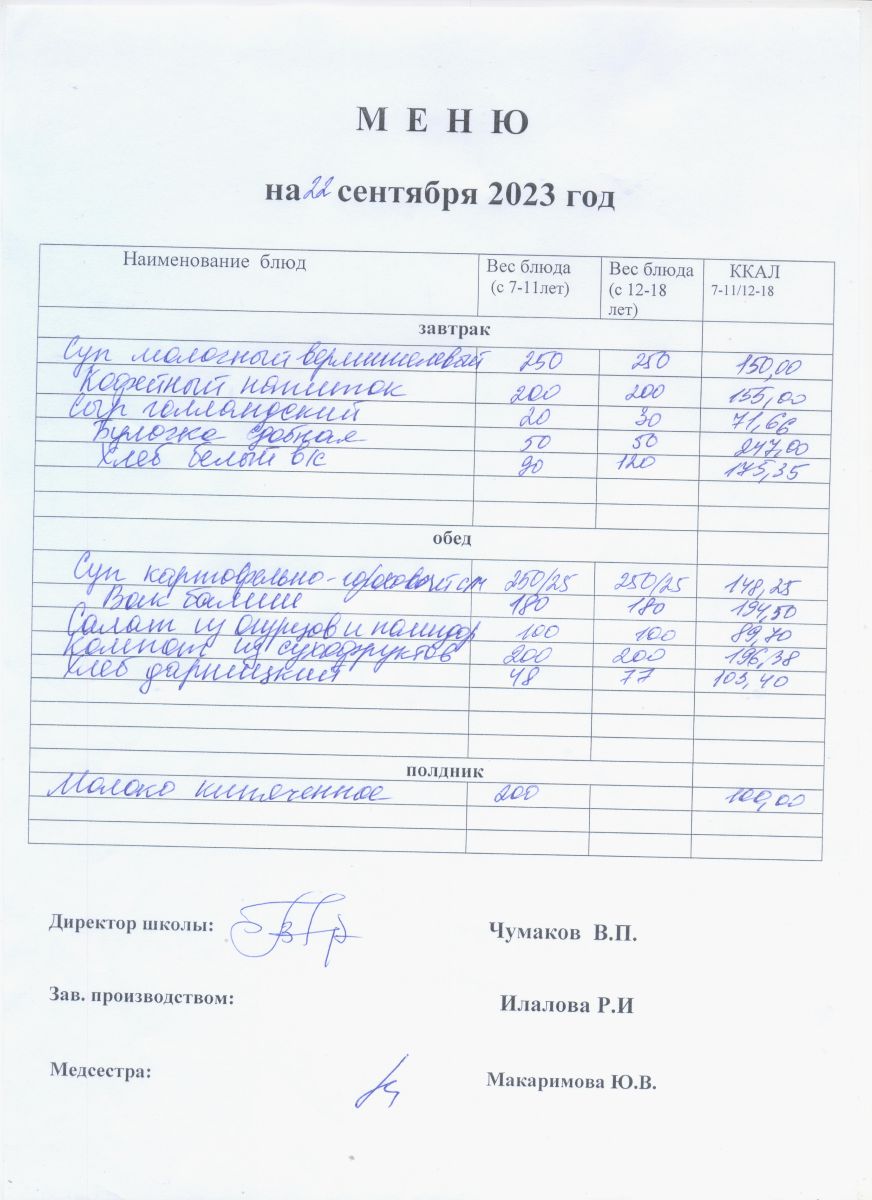 М Е Н Ю
на 22 сентября 2023 год
Наименование блюд Вес блюда (с 7-11лет) Вес блюда (с 12-18 лет) ККАЛ 7-11/12-18
завтрак
Суп молочный вермишелевый 250 250 150,00
Кофейный напиток 200 200 155,00
Сыр голландский 20 30 71,66
Булочка сдобная 50 50 247,00
Хлеб белый в/с 90 120 175,35
обед
Суп картофельно-гороховый с м 250/25 250/25 148,25
Вак балиш 180 180 194,50
Салат из огурцов и помидор 100 100 89,70
Компот из сухофруктов 200 200 196,38
Хлеб дарницкий 48 77 103,40
полдник
Молоко кипяченное 200 100,00
Директор школы: Чумаков В.П.
Зав. производством: Илалова Р.И
Медсестра: Макаримова Ю.В.